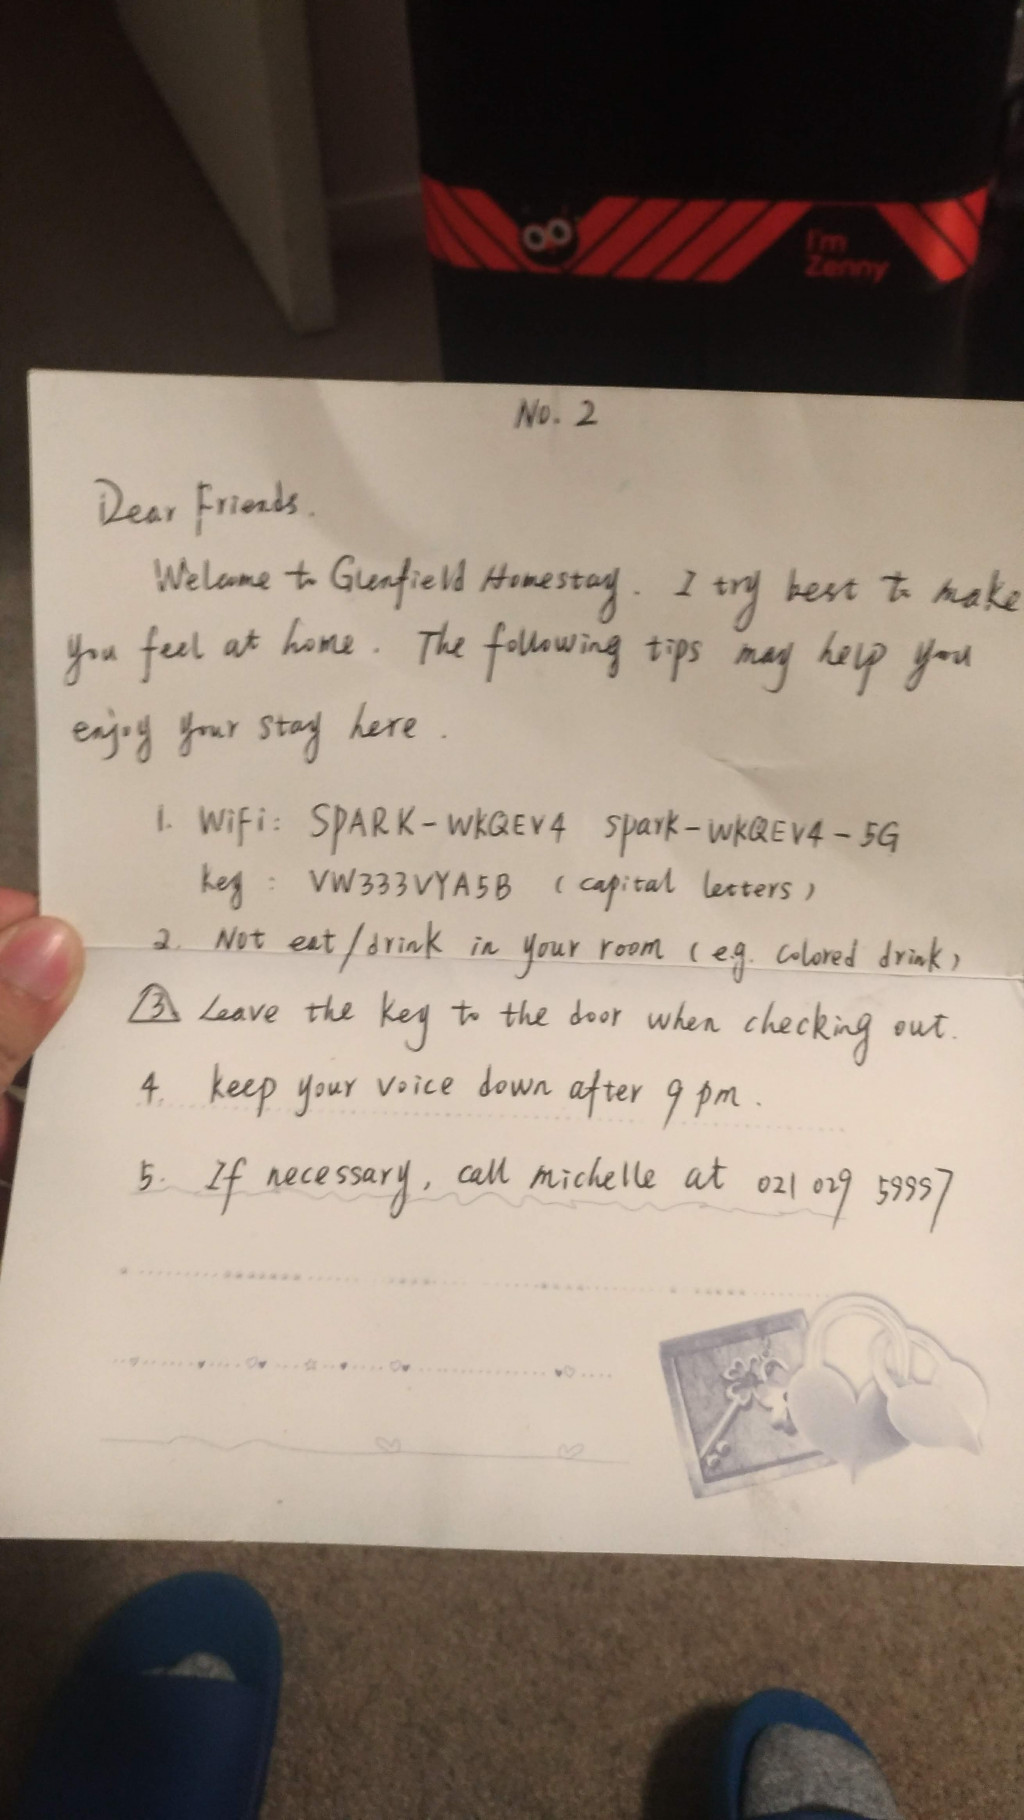 I'm
Zenny
No. 2
Dear Friends.
Welcome to Glenfield Homestay. I try best to make
you feel at home. The following tips may help you
enjoy your stay here.
1. WiFi: SPARK-WKQEV4 spark-WKQEV4-5G
key: VW333VYA5B (capital letters)
2. Not eat/drink in your room (eg. colored drink)
3 Leave the key to the door when checking out.
4. keep your voice down after 9 pm.
5. If necessary, call michelle at 021 029 59997